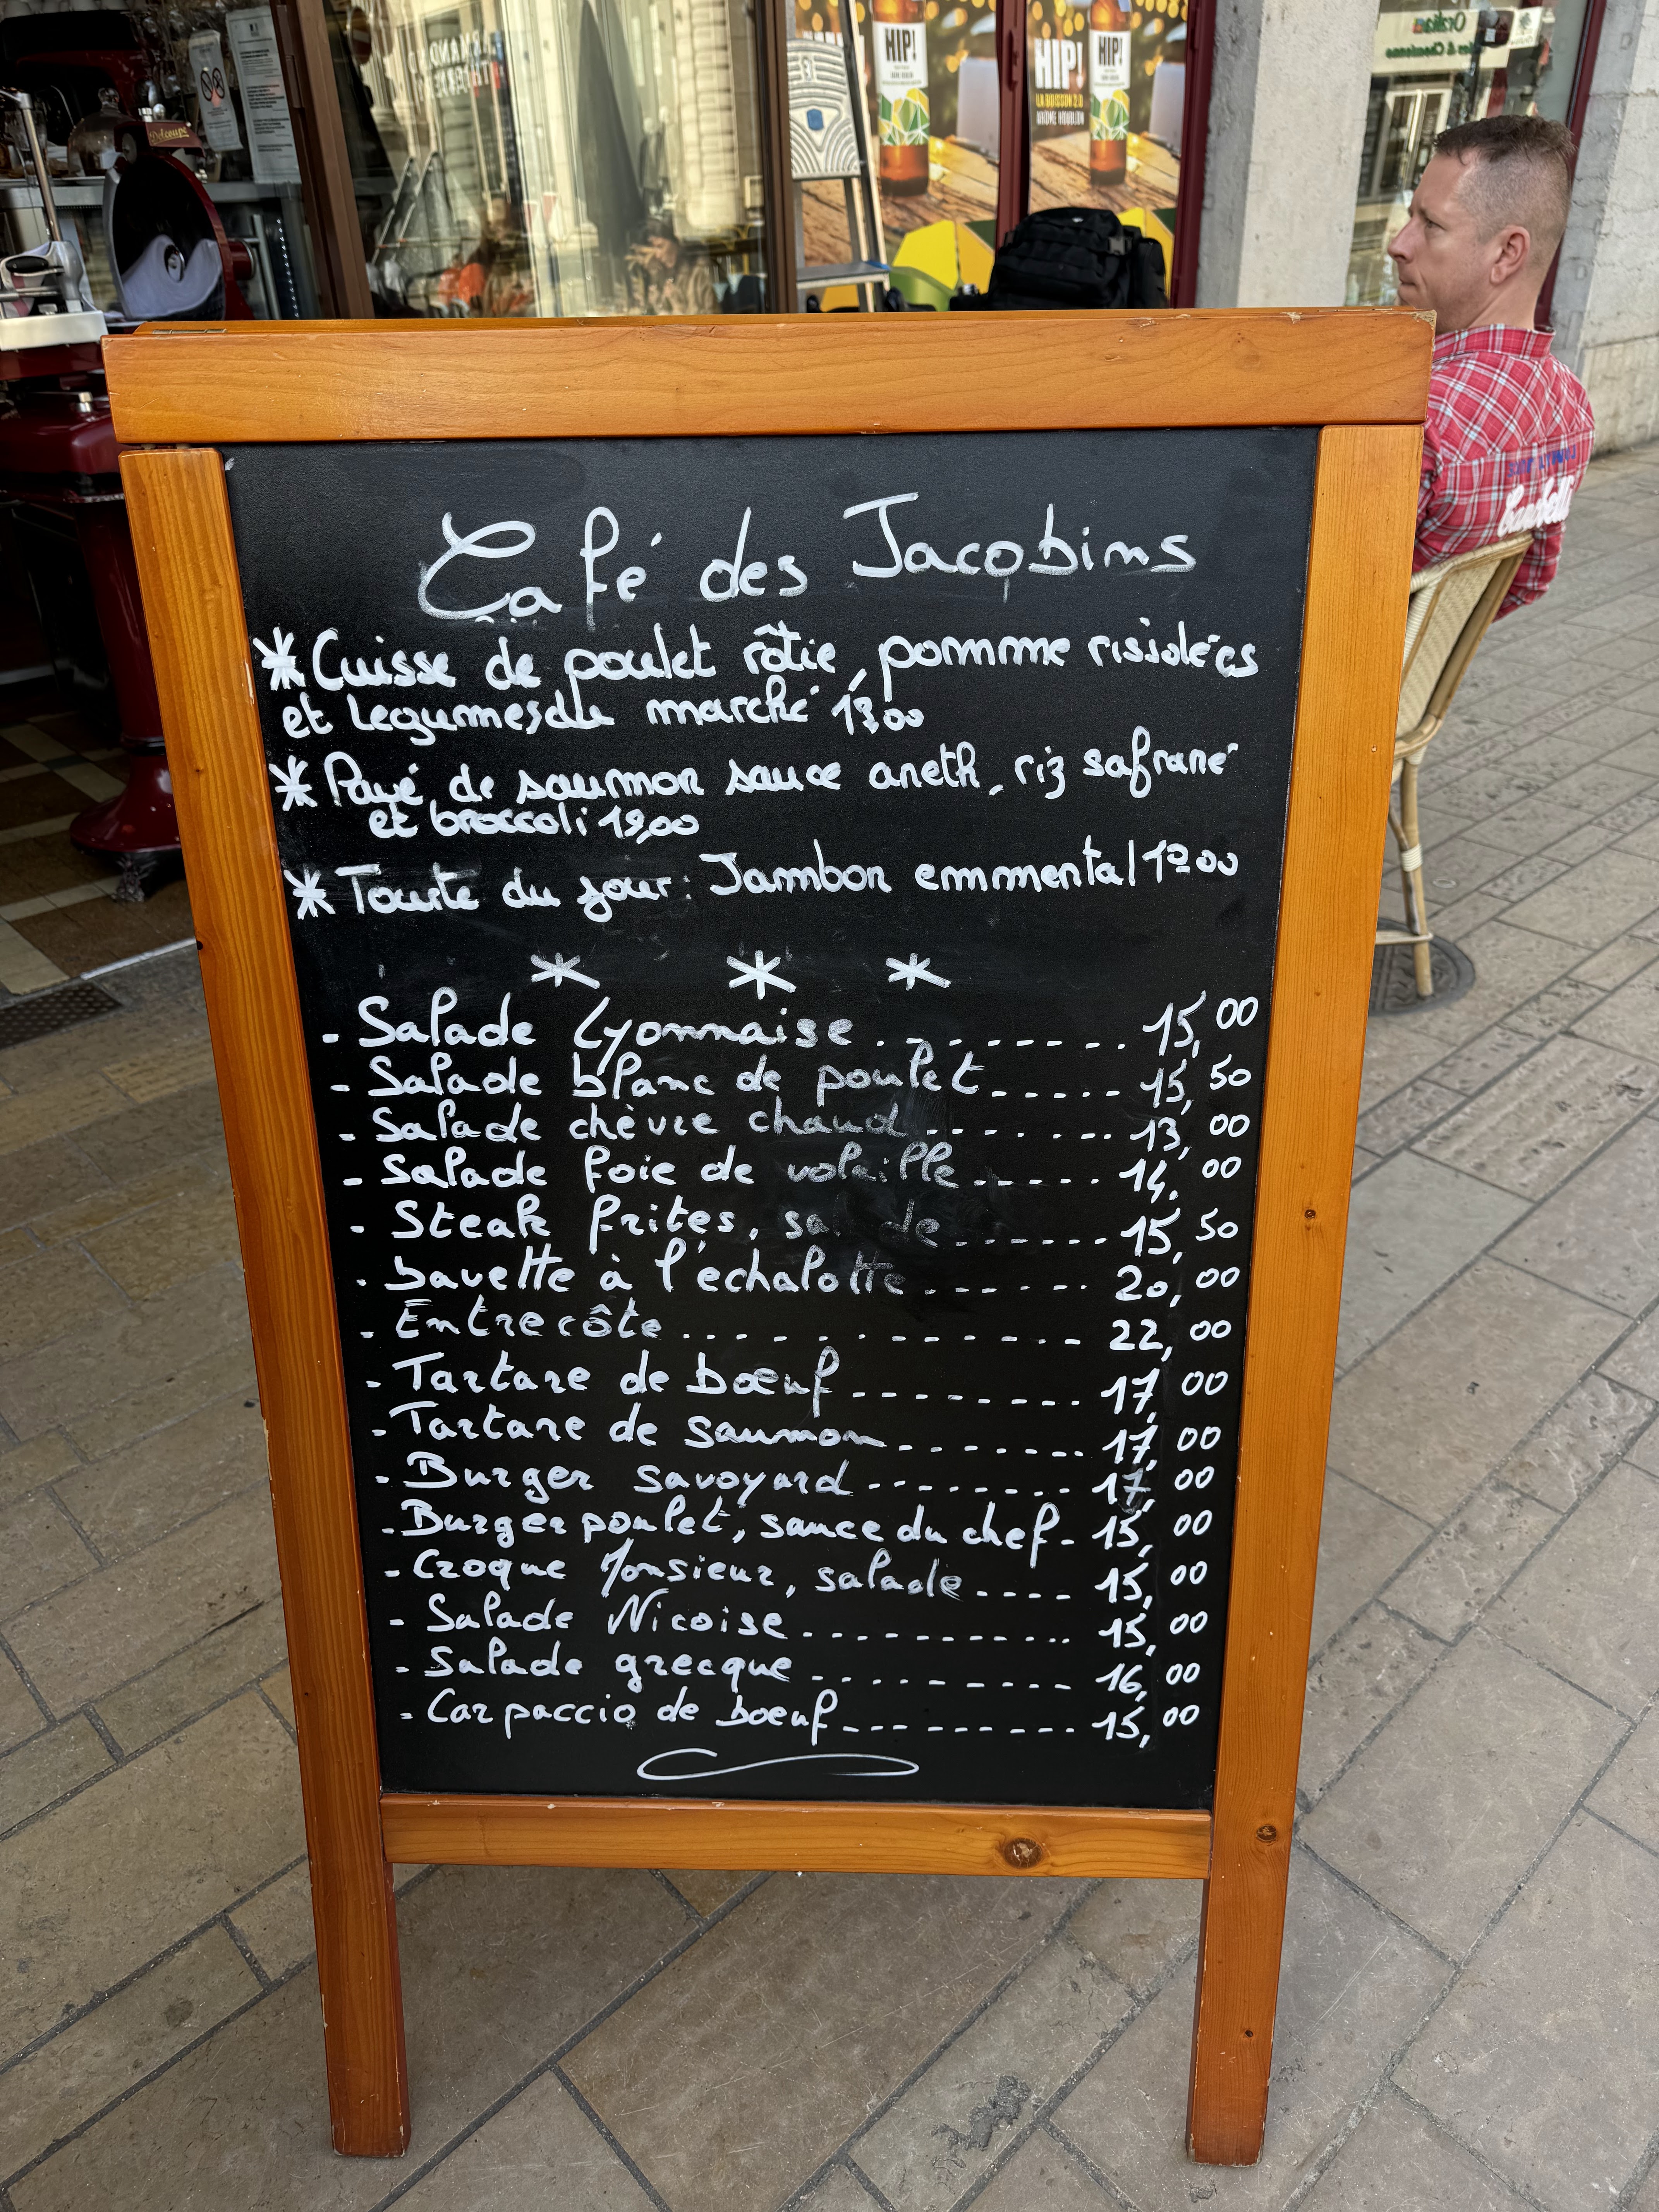 HIP!
HIP!
HIP!
LA BOISSON 2.0
ARÔME HOUBLON
Café des Jacobins
* Cuisse de poulet rôtie, pomme rissolées
et legumes du marché
* Pavé de saumon sauce aneth, riz safrané
et broccoli 19,00
* Tourte du jour: Jambon emmental
* * *
- Salade Lyonnaise . - - - - - - - . 15,00
- Salade blanc de poulet - - - - - 15,50
- Salade chèvre chaud - - - - - - - 13,00
- Salade foie de volaille - - - - - 14,00
- Steak frites, sa de - - - - - - - 15,50
- bavette à l'échalotte - - - - - - 20,00
- Entrecôte . . . - - - - - - - - - 22,00
- Tartare de bœuf - - - - - - - - 17,00
- Tartare de saumon - - - - - - - 17,00
- Burger savoyard - - - - - - - - 17,00
- Burger poulet, sauce du chef - 15,00
- Croque Monsieur, salade - - - - 15,00
- Salade Nicoise - - - - - - - - - - 15,00
- Salade grecque - - - - - - - - - - 16,00
- Carpaccio de boeuf - - - - - - - - 15,00